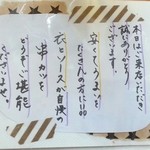 本日はご来店いただき
誠にありがとう
ございます。
安くてうまいを
たくさんの方に!!
衣とソースが自慢の
串カツを
どうぞご堪能
くださいませ。